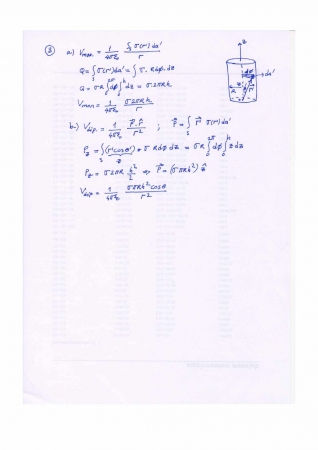 3) a.) V_mon. = 1/4πε₀ ∫_S σ(r') da' / r
Q = ∫_S σ(r') da' = ∫ σ. R dφ. dz
Q = σ R ∫_0^2π dφ ∫_0^h dz = σ. 2πR h
V_mon = 1/4πε₀ σ 2πR h / r
b.) V_dip. = 1/4πε₀ P⃗. r̂ / r² ; P⃗ = ∫_S r⃗' σ(r') da'
P_z = ∫ (r' cosθ') σ R dφ dz = σ R ∫_0^2π dφ ∫_0^h z dz
z
P_z = σ 2πR h²/2 ⇒ P⃗ = (σ πR h²) ẑ
V_dip = 1/4πε₀ σπR h² cosθ / r²
z
dφ
da'
R